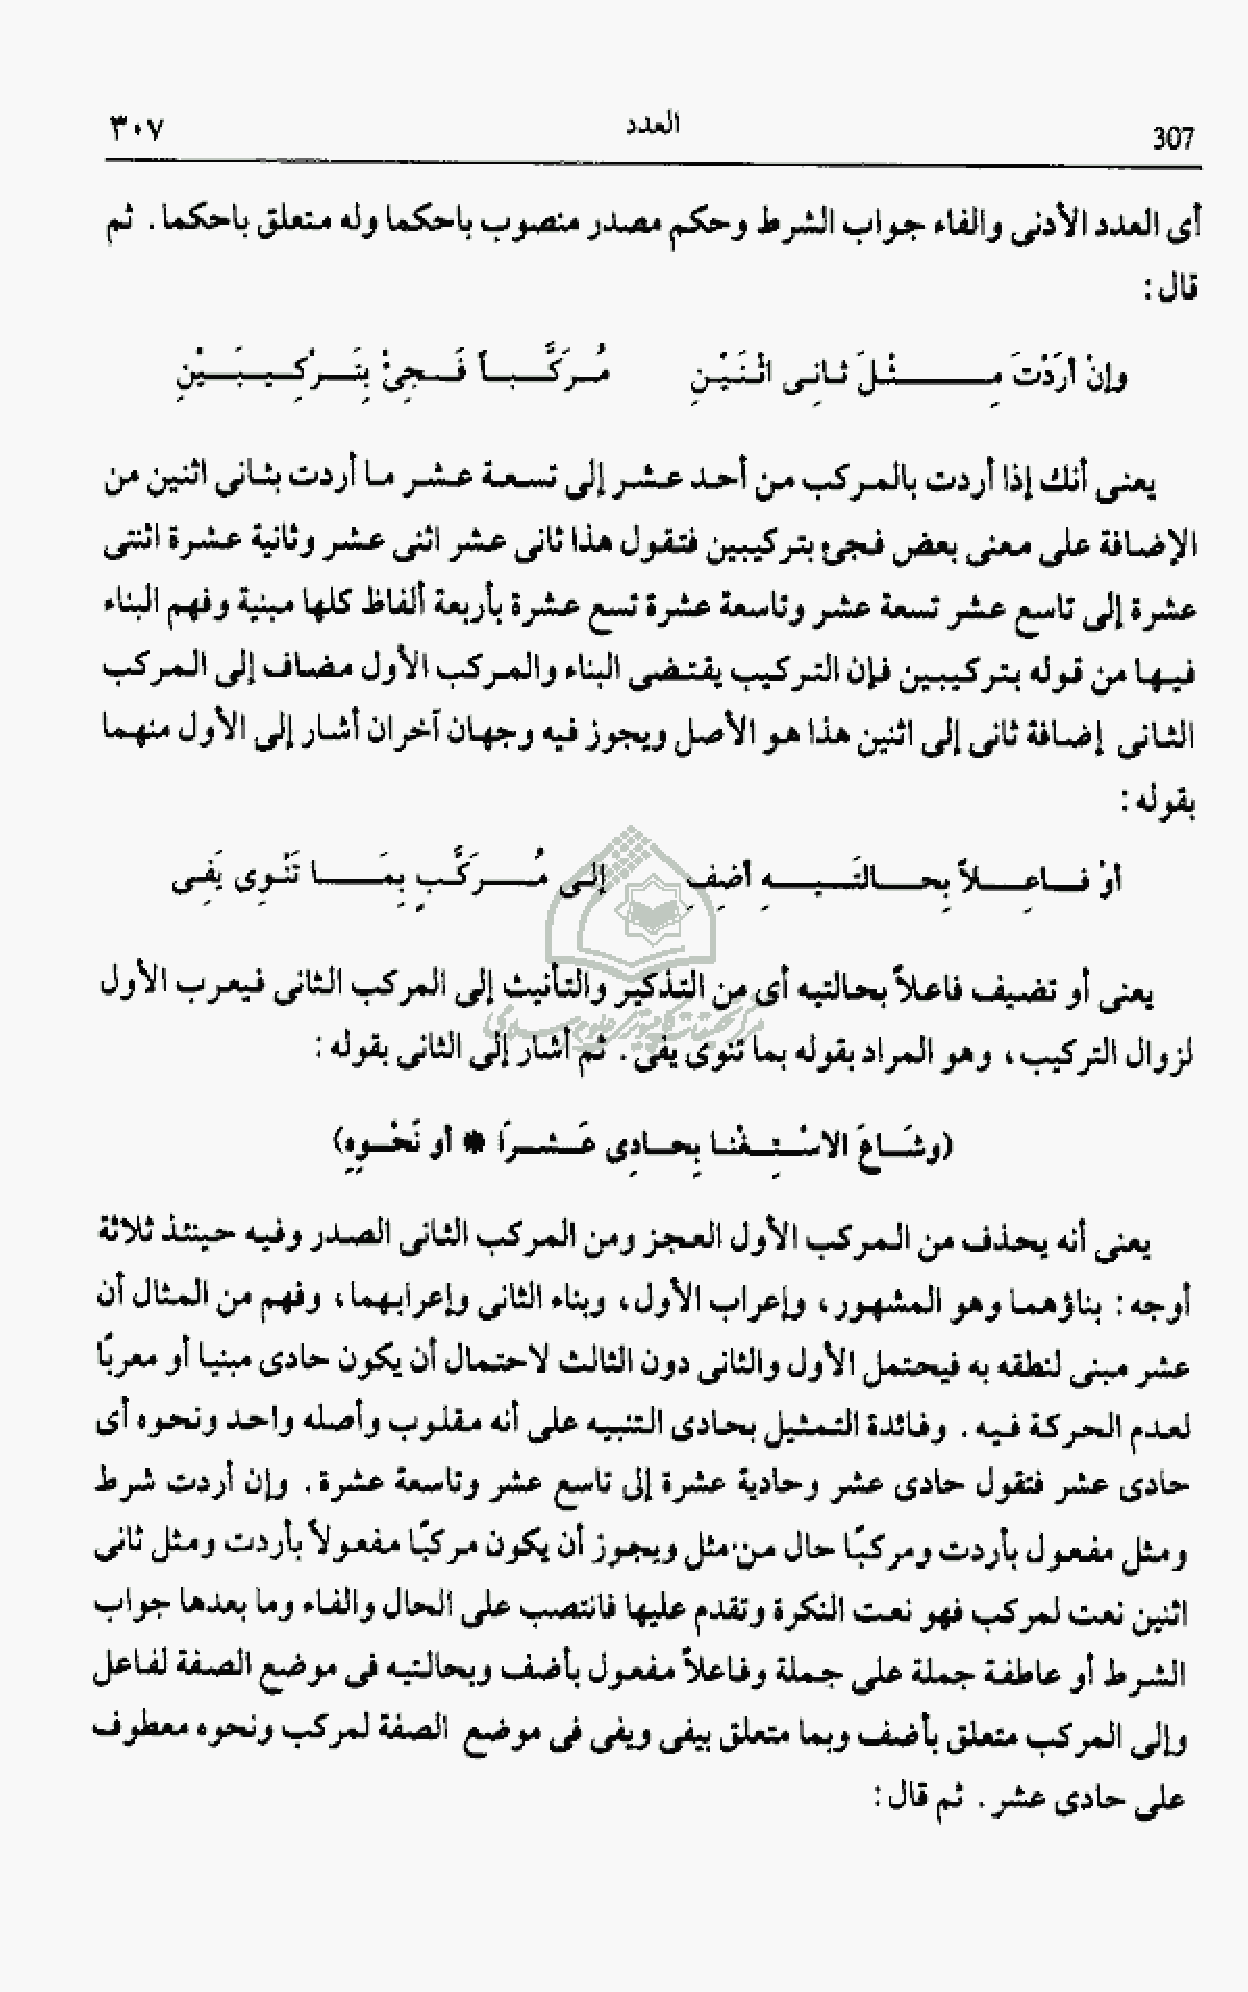 307 العدد ٣٠٧
أى العدد الأدنى والفاء جواب الشرط وحكم مصدر منصوب باحكما وله متعلق باحكما . ثم
قال :
وإنْ أرَدْتَ مِـثْـلَ ثـانِـى اثْـنَـيْـنِ مُـرَكَّـبـاً فَـجِـئْ بِتَـرْكِـيـبَـيْنِ
يعنى أنك إذا أردت بالمركب من أحد عشر إلى تسعة عشر ما أردت بثانى اثنين من
الإضافة على معنى بعض فجئ بتركيبين فتقول هذا ثانى عشر اثنى عشر وثانية عشرة اثنتى
عشرة إلى تاسع عشر تسعة عشر وتاسعة عشرة تسع عشرة بأربعة ألفاظ كلها مبنية وفهم البناء
فيها من قوله بتركيبين فإن التركيب يقتضى البناء والمركب الأول مضاف إلى المركب
الثانى إضافة ثانى إلى اثنين هذا هو الأصل ويجوز فيه وجهان آخران أشار إلى الأول منهما
بقوله :
أوْ فـاعِـلاً بِحـالَتَـيـهِ أضِـفِ إلـى مُـركَّـبٍ بِمَـا تَنْـوِى يَفِـى
يعنى أو تضيف فاعلاً بحالتيه أى من التذكير والتأنيث إلى المركب الثانى فيعرب الأول
لزوال التركيب ، وهو المراد بقوله بما تنوى يفى . ثم أشار إلى الثانى بقوله :
(وشَـاعَ الاسْـتِـغْنـا بِحـادِى عَـشـرَا * أو نَحْـوِهِ)
يعنى أنه يحذف من المركب الأول العجز ومن المركب الثانى الصدر وفيه حينئذ ثلاثة
أوجه : بناؤهما وهو المشهور ، وإعراب الأول ، وبناء الثانى وإعرابهما ، وفهم من المثال أن
عشر مبنى لنطقه به فيحتمل الأول والثانى دون الثالث لاحتمال أن يكون حادى مبنيا أو معربًا
لعدم الحركة فيه . وفائدة التمثيل بحادى التنبيه على أنه مقلوب وأصله واحد ونحوه أى
حادى عشر فتقول حادى عشر وحادية عشرة إلى تاسع عشر وتاسعة عشرة . وإن أردت شرط
ومثل مفعول بأردت ومركبًا حال من مثل ويجوز أن يكون مركبًا مفعولاً بأردت ومثل ثانى
اثنين نعت لمركب فهو نعت النكرة وتقدم عليها فانتصب على الحال والفاء وما بعدها جواب
الشرط أو عاطفة جملة على جملة وفاعلاً مفعول بأضف وبحالتيه فى موضع الصفة لفاعل
وإلى المركب متعلق بأضف وبما متعلق بيفى ويفى فى موضع الصفة لمركب ونحوه معطوف
على حادى عشر . ثم قال :